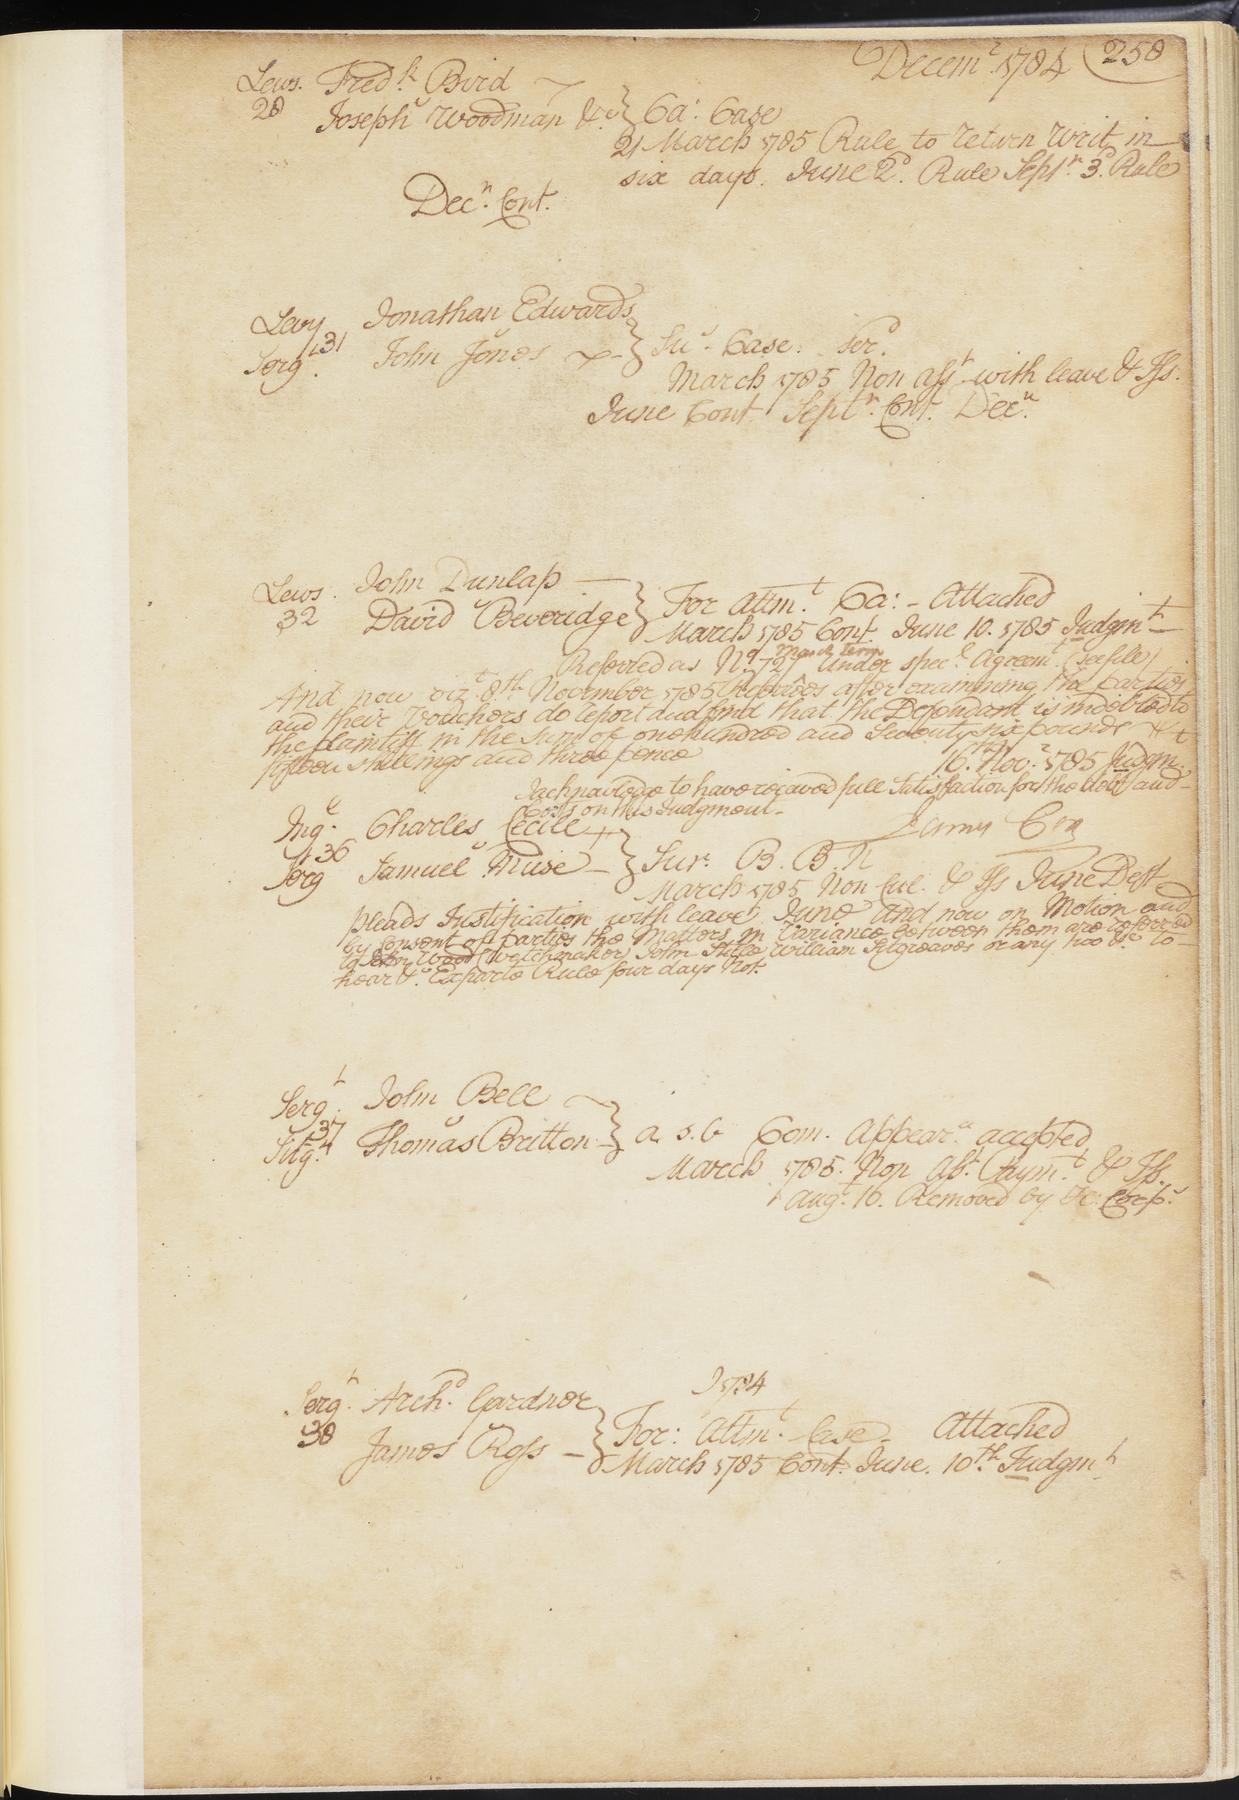 Decemr. 1784 258
Lews. Fredk. Bird
28 Joseph Woodman &c } Ca: Case
21 March 1785 Rule to return Writ in
six days. June 2d. Rule Septr. 3d. Rule
Decr. Cont.
Levy Jonathan Edwards
31
Sergt. John Jones } Su Case. Ser.
March 1785 Non Asst with leave & Iss.
June Cont Septr. Cont. Decr.
Lews. John Dunlap
32 David Beveridge } For Attmt. Ca: - Attached
March 1785 Cont. June 10. 1785 Judgmt
Referred as No. 727 March Term Under specl. Agreemt. (see file)
And now vizt. 8th November 1785 Referees after examining the parties
and their Vouchers do report and find that the Defendant is indebted to
the plaintiff in the Sum of one hundred and Seventy six pounds
fifteen shillings and three pence 16th. Novr. 1785 Judgmt.
I acknowledge to have received full Satisfaction for the debt and
Costs on this Judgment.
Ing. Charles Cecile
36
Serg Samuel Muse } Sur. B. B. R
March 1785 Non Cul. & Iss June Deft
pleads Justification with leave June And now on Motion and
by Consent of parties the Matters in Variance between them are referred
to John Wood (watchmaker) John Stille William Pilgreaves or any two &c to
hear &c. Exparte Rule four days Not.
Sergt. John Bell
37
Fitzg. Thomas Britton } a s. b Com. Appeara. accepted
March 1785. Non Ast. Paymt. & Iss.
Augt. 16. Removed by Corps.
Sergt. Archd. Gardner 1784
38 James Ross } For: Attmt. Case - Attached
March 1785 Cont. June. 10th. Judgmt